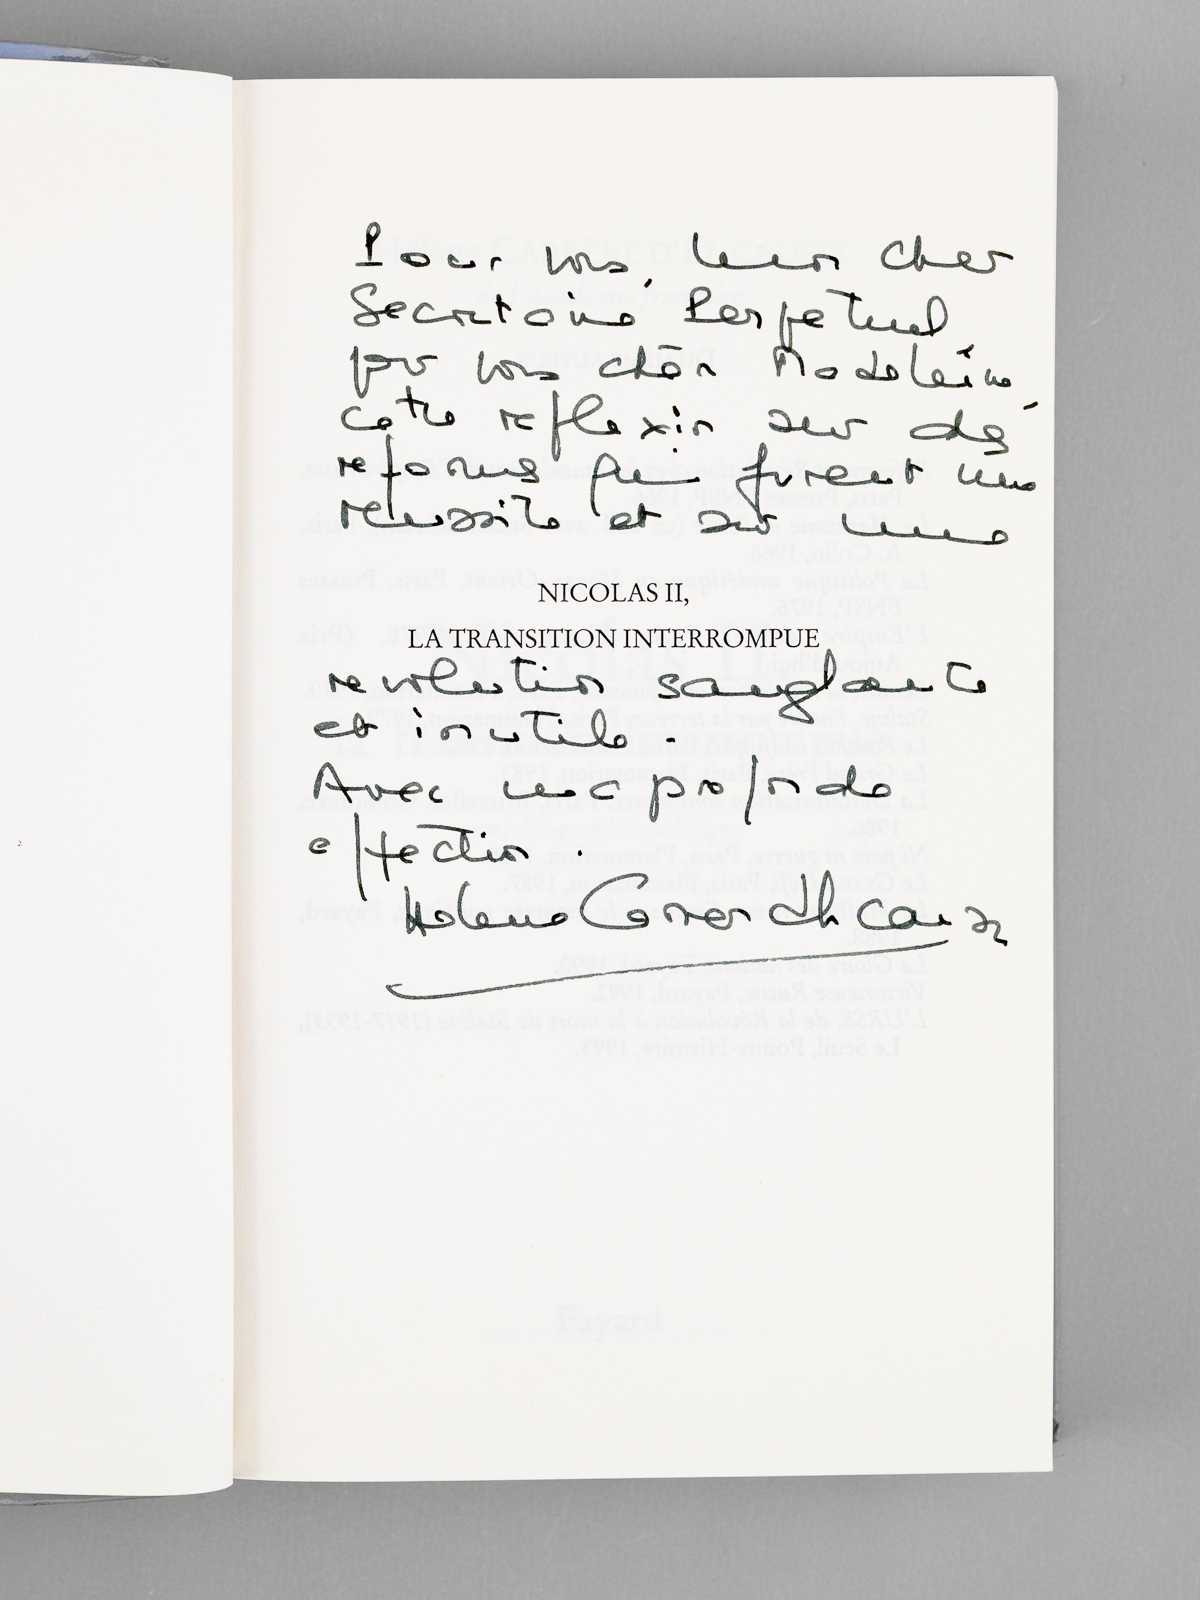 Pour vous, mon cher
Secrétaire Perpétuel
pour vous chère Madeleine
cette reflexion sur des
reformes qui furent une
reussite et sur une
NICOLAS II,
LA TRANSITION INTERROMPUE
revolution sanglante
et inutile.
Avec ma profonde
affection.
Hélène Carrère d'Encausse
Fayard